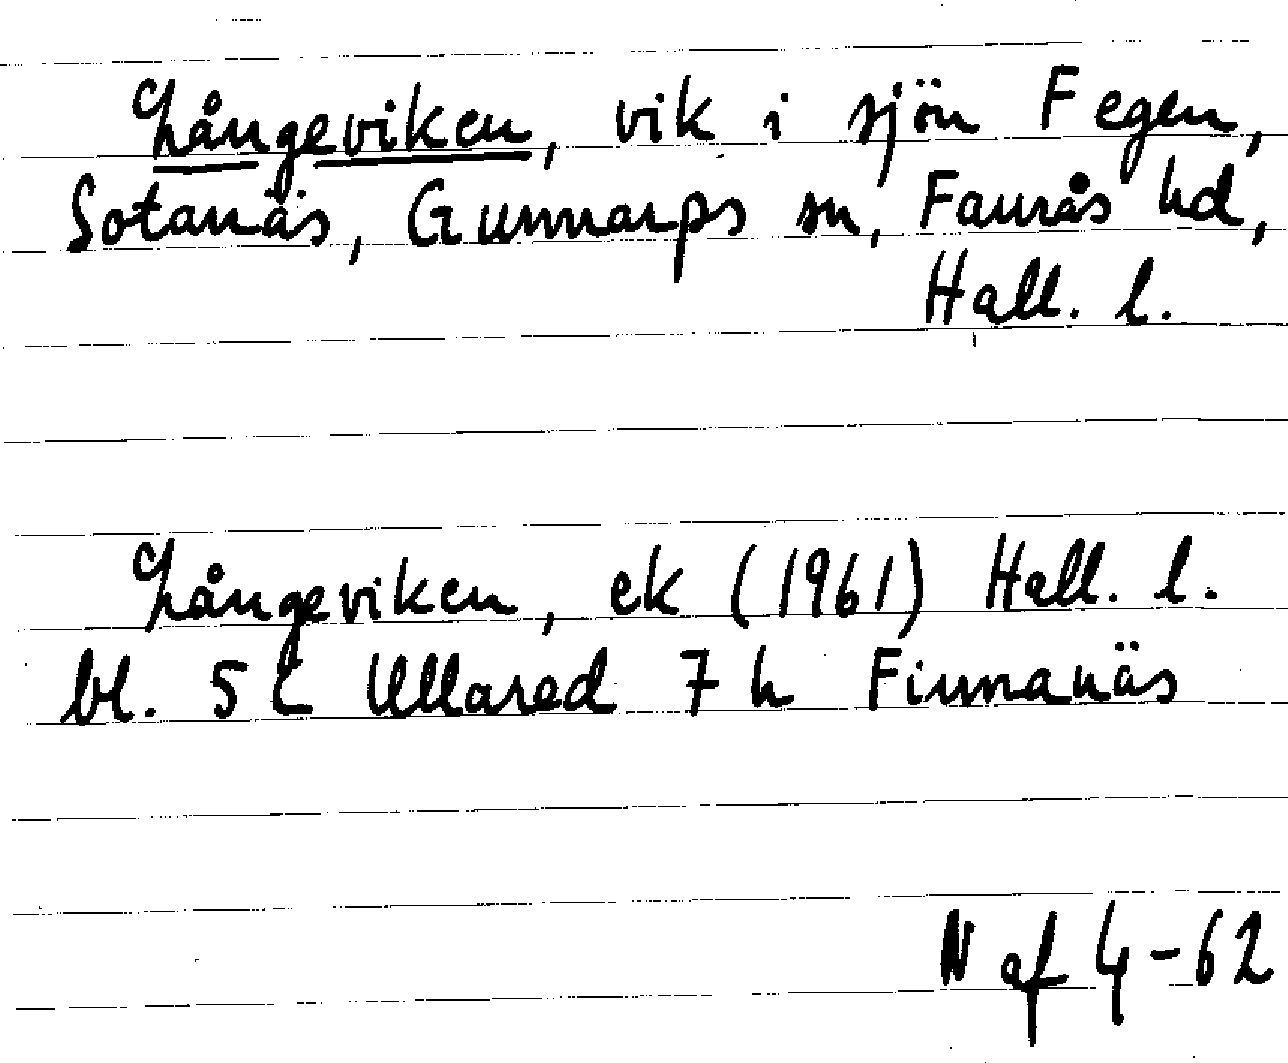 Långeviken, vik i sjön Fegen,
Sotanäs, Gunnarps sn, Faurås hd,
Hall. l.
Långeviken, ek (1961) Hall. l.
bl. 5 C Ullared 7 h Finnanäs
N af 4-62